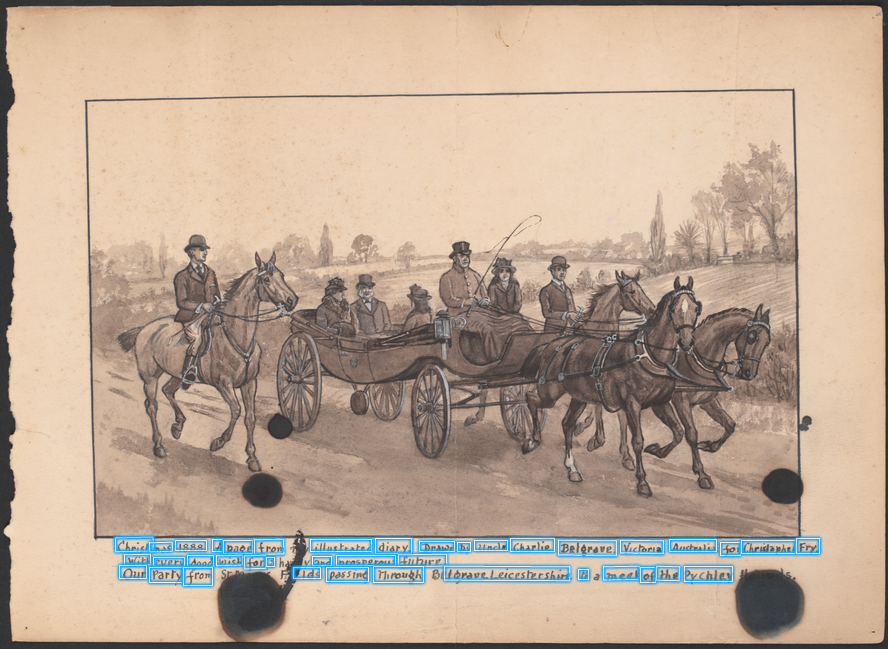 Christmas 1888 A page from illustrated diary Drawn by Uncle Charlie Belgrave Victoria Australia for Christopher Fry
With every good wish for a happy and prosperous future
Our Party from Fields passing Through Belgrave Leicestershire to a meet of the Pychley Hounds.